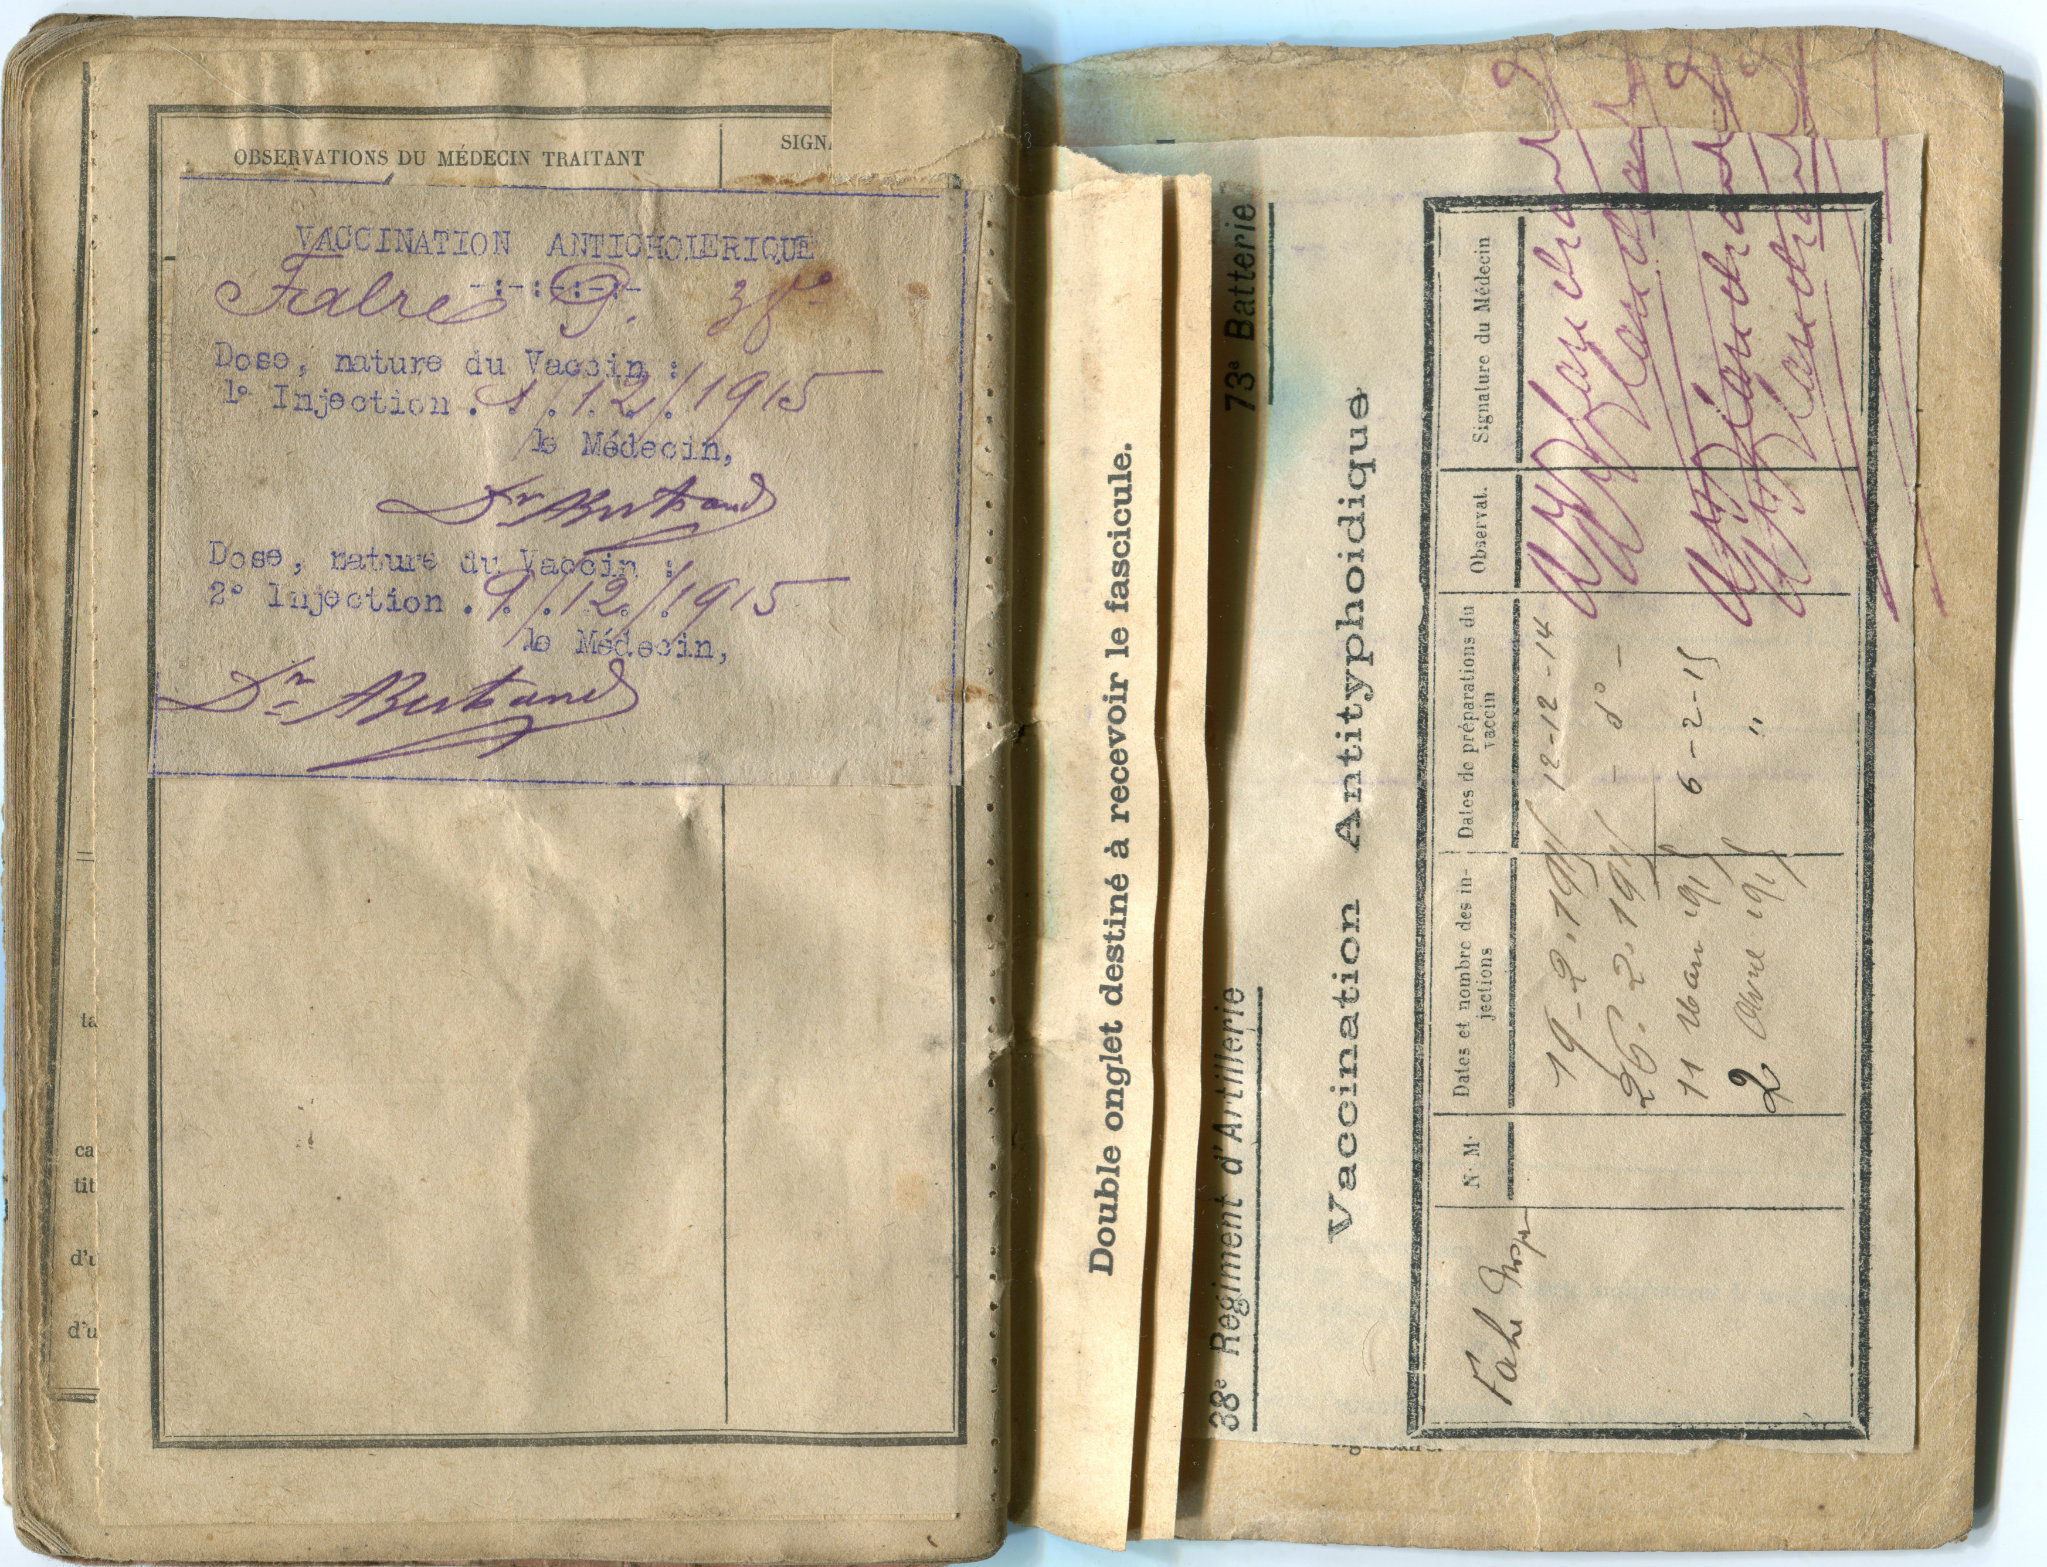 OBSERVATIONS DU MÉDECIN TRAITANT
SIGNA
VACCINATION ANTICHOLERIQUE
-:-:-:-:-
Fabre P. 38e
Dose, nature du Vaccin :
1° Injection . 1/12/1915
le Médecin,
Dr Bertrand
Dose, nature du Vaccin :
2° Injection . 9/12/1915
le Médecin,
Dr Bertrand
ta
ca
tit
d'u
d'u
Double onglet destiné à recevoir le fascicule.
38e Régiment d'Artillerie
73e Batterie
Vaccination Antityphoidique
N. M.
Dates et nombre des in-
jections
Dates de préparations du
vaccin
Observat.
Signature du Médecin
Fabre
19-2-1915 12-12-14
26.2.1915 - d° -
11 Mars 1915 6-2-15
2 Avril 1915 "